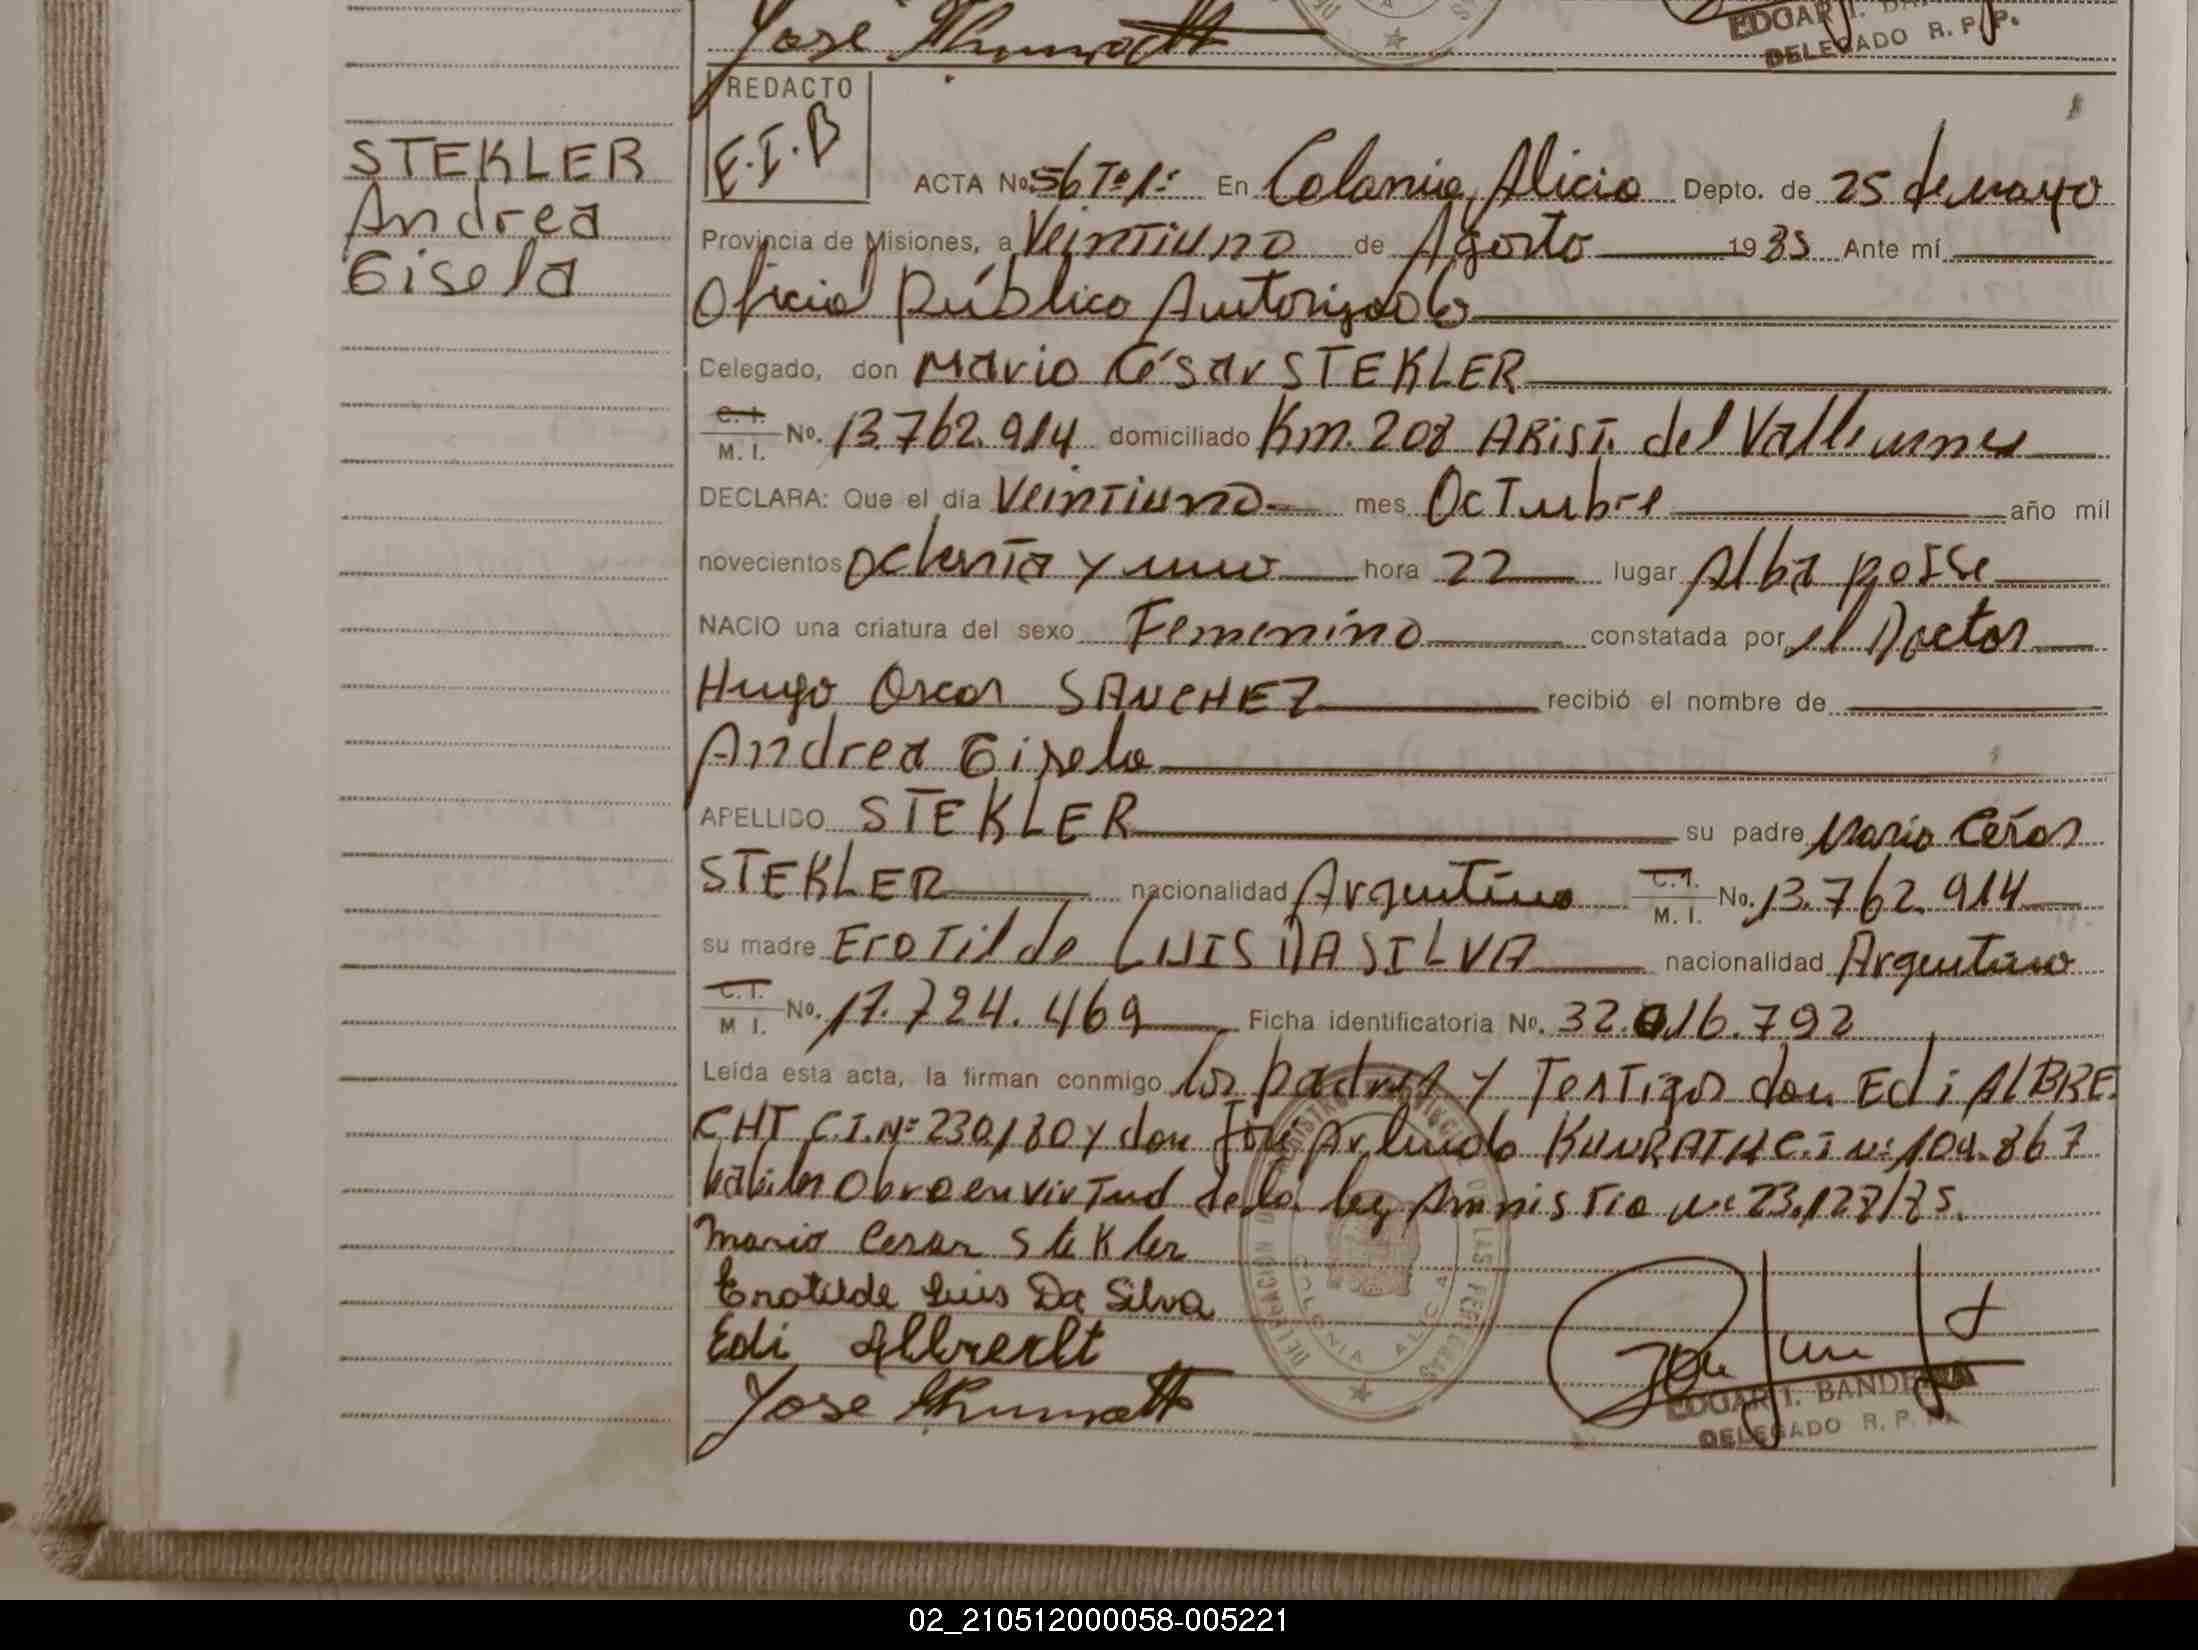 José
EDGAR I.
DELEGADO R. P. P.
REDACTO
E.I.B
STEKLER
Andrea
Gisela
ACTA No. 56 Tº 1º En Colonia Alicia Depto. de 25 de mayo
Provincia de Misiones, a Veintiuno de Agosto 1985 Ante mí
Oficial Público Autorizado
Celegado, don Mario César STEKLER
C. I.
M. I. No. 13.762.914 domiciliado Km. 208 ARIST. del Valle
DECLARA: Que el día Veintiuno mes Octubre año mil
novecientos Ochenta y uno hora 22 lugar Alba posse
NACIO una criatura del sexo Femenino constatada por el Doctor
Hugo Oscar SANCHEZ recibió el nombre de
Andrea Gisela
APELLIDO STEKLER su padre Mario César
STEKLER nacionalidad Argentino C. I. M. I. No. 13.762.914
su madre Erotilde LUIS DA SILVA nacionalidad Argentino
C. I.
M I. No. 17.724.469 Ficha identificatoria No. 32.016.792
Leída esta acta, la firman conmigo los padres y Testigos don Edi ALBRE
CHT C.I. Nº 230.180 y don José Arlindo KUNRATH C.I Nº 109.867
habiles Obro en virtud de la ley Amnistia Nº 23.128/85.
Mario Cesar Stekler
Erotilde Luis Da Silva
Edi Albrecht
Jose
COLONIA ALICIA
EDGAR I. BANDE
DELEGADO R. P.
02_210512000058-005221